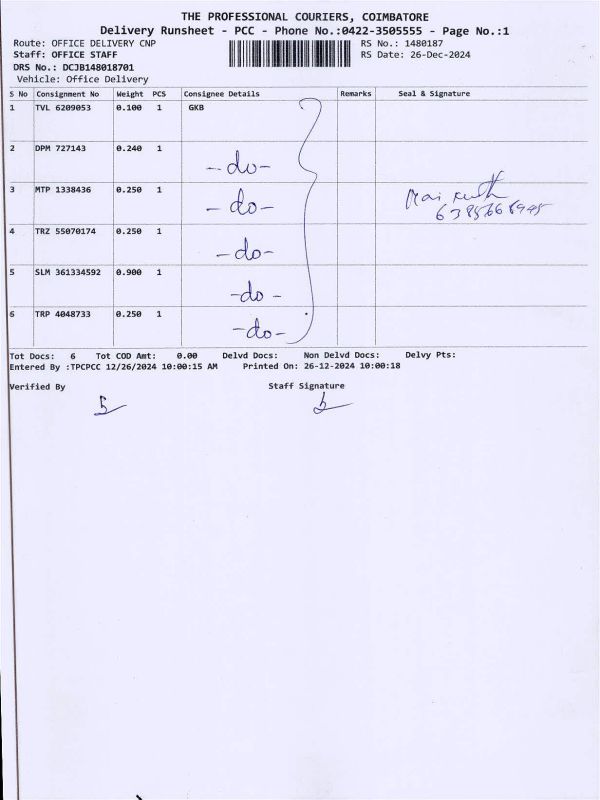 THE PROFESSIONAL COURIERS, COIMBATORE
Delivery Runsheet - PCC - Phone No.:0422-3505555 - Page No.:1
Route: OFFICE DELIVERY CNP RS No.: 1480187
Staff: OFFICE STAFF RS Date: 26-Dec-2024
DRS No.: DCJB148018701
Vehicle: Office Delivery
S No Consignment No Weight PCS Consignee Details Remarks Seal & Signature
1 TVL 6209053 0.100 1 GKB
2 DPM 727143 0.240 1
-do-
3 MTP 1338436 0.250 1
-do-
4 TRZ 55070174 0.250 1
-do-
5 SLM 361334592 0.900 1
-do-
6 TRP 4048733 0.250 1
-do-
Tot Docs: 6 Tot COD Amt: 0.00 Delvd Docs: Non Delvd Docs: Delvy Pts:
Entered By :TPCPCC 12/26/2024 10:00:15 AM Printed On: 26-12-2024 10:00:18
Verified By Staff Signature